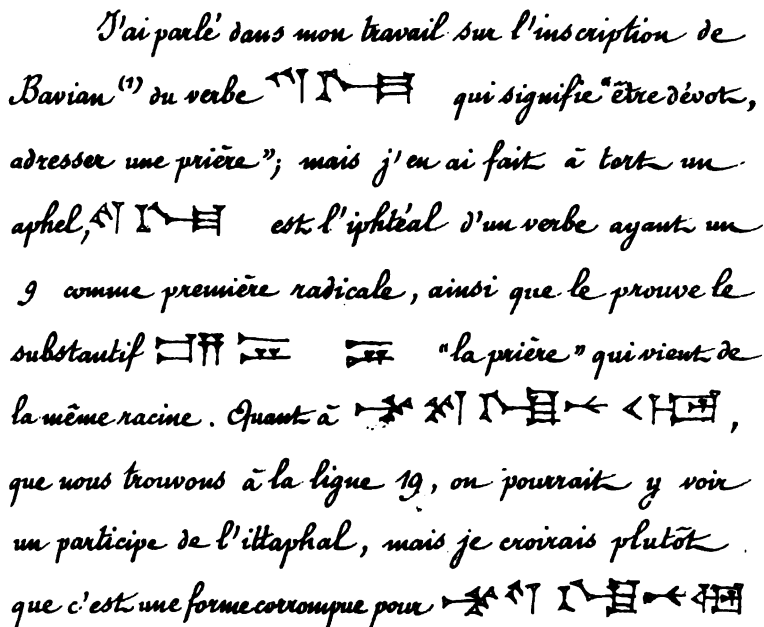 J'ai parlé dans mon travail sur l'inscription de
Bavian (1) du verbe qui signifie "être dévot,
adresser une prière"; mais j'en ai fait à tort un
aphel, est l'iphtéal d'un verbe ayant un
9 comme première radicale, ainsi que le prouve le
substantif "la prière" qui vient de
la même racine. Quant à ,
que nous trouvons à la ligne 19, on pourrait y voir
un participe de l'ittaphal, mais je croirais plutôt
que c'est une forme corrompue pour